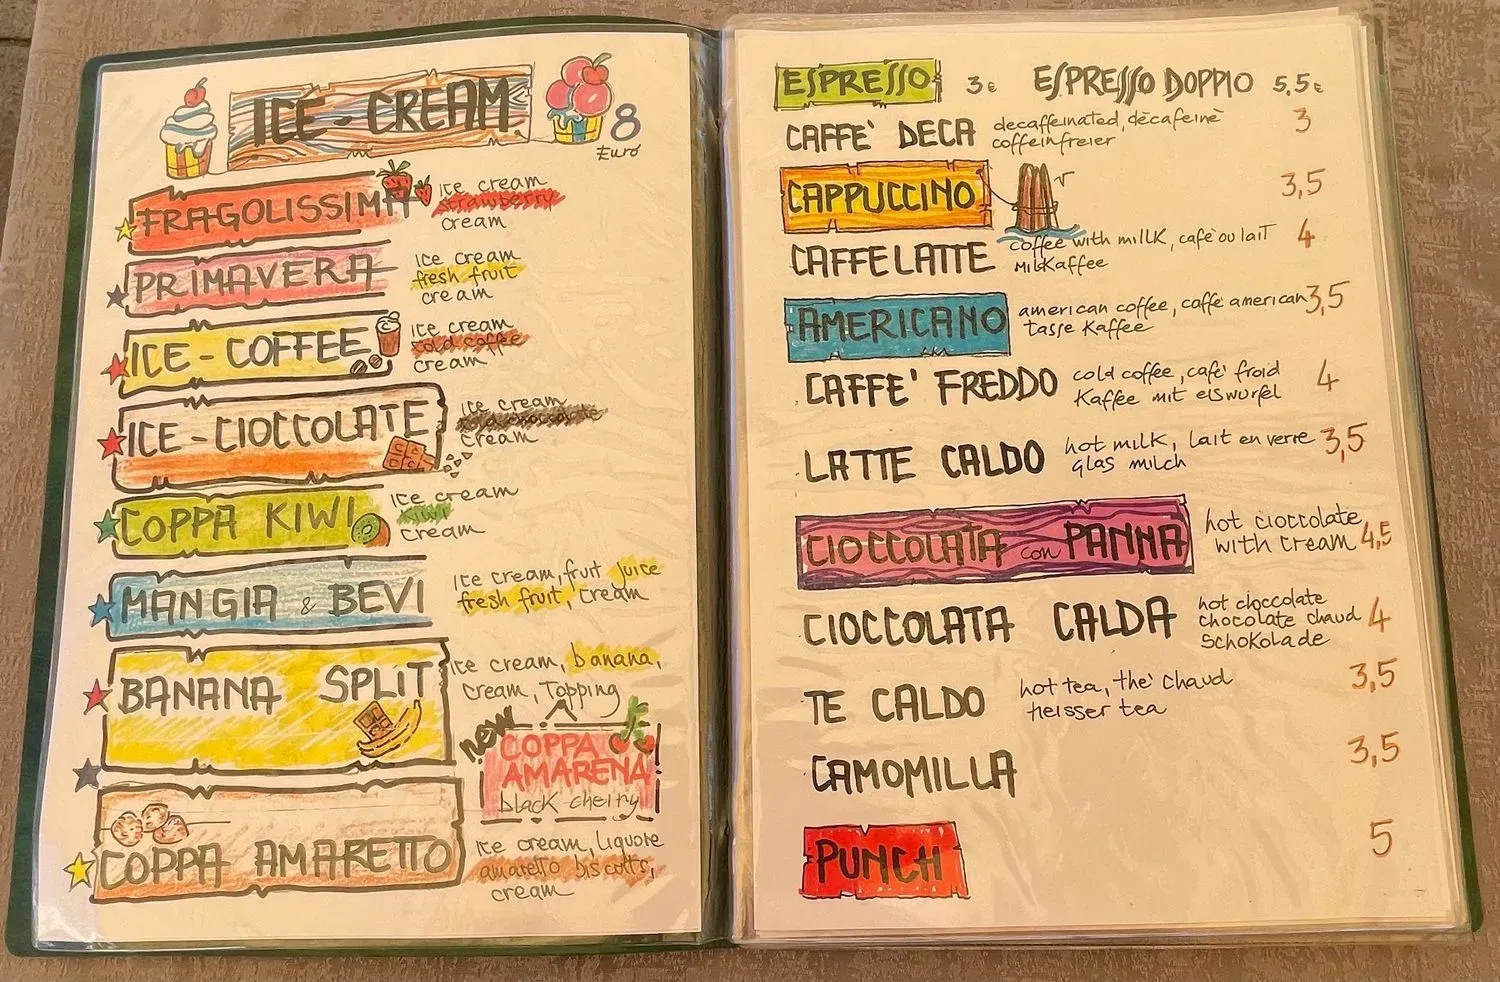 ICE-CREAM
8
Euro
FRAGOLISSIMA
ice cream
strawberry
cream
PRIMAVERA
ice cream
fresh fruit
cream
ICE-COFFEE
ice cream
cold coffee
cream
ICE-CIOCCOLATE
ice cream
cold chocolate
cream
COPPA KIWI
ice cream
kiwi
cream
MANGIA & BEVI
ice cream, fruit juice
fresh fruit, cream
BANANA SPLIT
ice cream, banana,
cream, Topping
new
COPPA
AMARENA
black cherry
COPPA AMARETTO
ice cream, liquore
amaretto biscotts,
cream
ESPRESSO 3€ ESPRESSO DOPPIO 5,5€
CAFFE' DECA decaffeinated, dècafeinè 3
coffeinfreier
CAPPUCCINO 3,5
CAFFELATTE coffee with millk, cafè ou lait 4
Milkaffee
AMERICANO american coffee, caffè american 3,5
tasse Kaffee
CAFFE' FREDDO cold coffee, cafè froid 4
Kaffee mit eiswurfel
LATTE CALDO hot milk, lait en verre 3,5
glas milch
CIOCCOLATA con PANNA hot cioccolate 4,5
with cream
CIOCCOLATA CALDA hot cioccolate
chocolate chaud 4
Schokolade
TE CALDO hot tea, thè chaud 3,5
heisser tea
CAMOMILLA 3,5
PUNCH 5